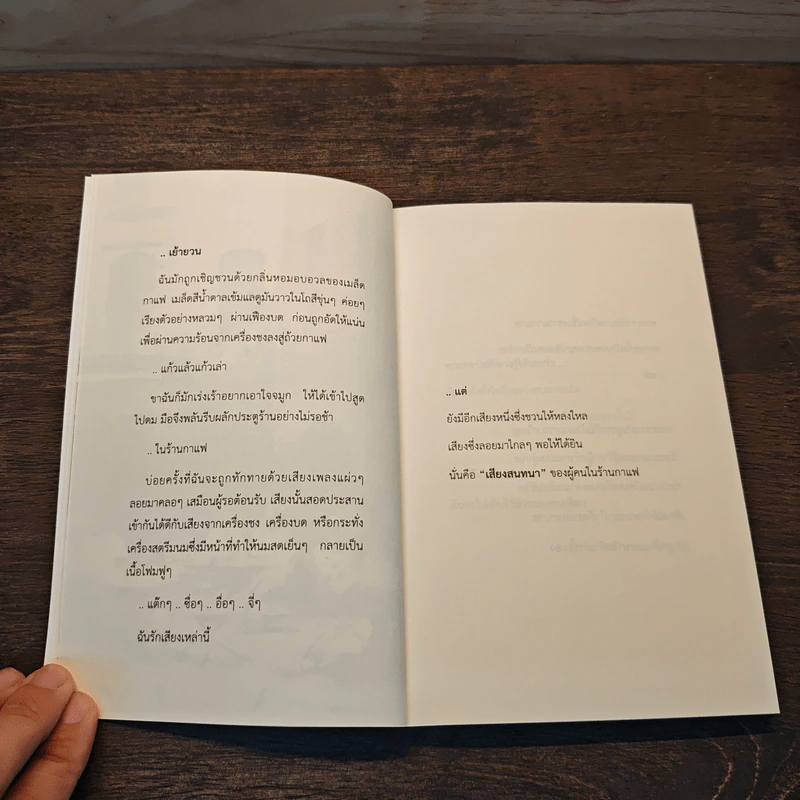 .. เย้ายวน
ฉันมักถูกเชิญชวนด้วยกลิ่นหอมอบอวลของเมล็ด
กาแฟ เมล็ดสีน้ำตาลเข้มแลดูมันวาวในโถสีขุ่นๆ ค่อยๆ
เรียงตัวอย่างหลวมๆ ผ่านเฟืองบด ก่อนถูกอัดให้แน่น
เพื่อผ่านความร้อนจากเครื่องชงลงสู่ถ้วยกาแฟ
.. แก้วแล้วแก้วเล่า
ขาฉันก็มักเร่งเร้าอยากเอาใจจมูก ให้ได้เข้าไปสูด
ไปดม มือจึงพลันรีบผลักประตูร้านอย่างไม่รอช้า
.. ในร้านกาแฟ
บ่อยครั้งที่ฉันจะถูกทักทายด้วยเสียงเพลงแผ่วๆ
ลอยมาคลอๆ เสมือนผู้รอต้อนรับ เสียงนั้นสอดประสาน
เข้ากันได้ดีกับเสียงจากเครื่องชง เครื่องบด หรือกระทั่ง
เครื่องสตรีมนมซึ่งมีหน้าที่ทำให้นมสดเย็นๆ กลายเป็น
เนื้อโฟมฟูๆ
.. แต๊กๆ .. ซื่อๆ .. อื่อๆ .. จี่ๆ
ฉันรักเสียงเหล่านี้
.. แต่
ยังมีอีกเสียงหนึ่งซึ่งชวนให้หลงใหล
เสียงซึ่งลอยมาไกลๆ พอให้ได้ยิน
นั่นคือ “เสียงสนทนา” ของผู้คนในร้านกาแฟ